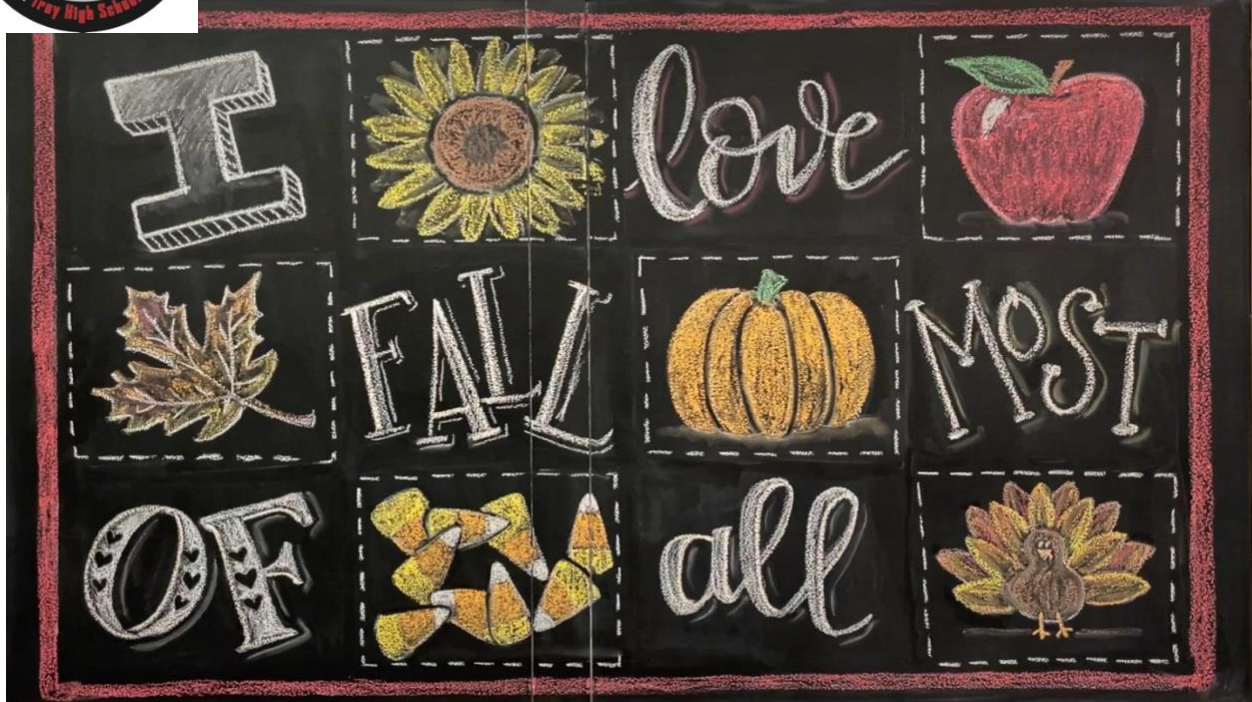 Troy High School
I love
FALL MOST
OF all